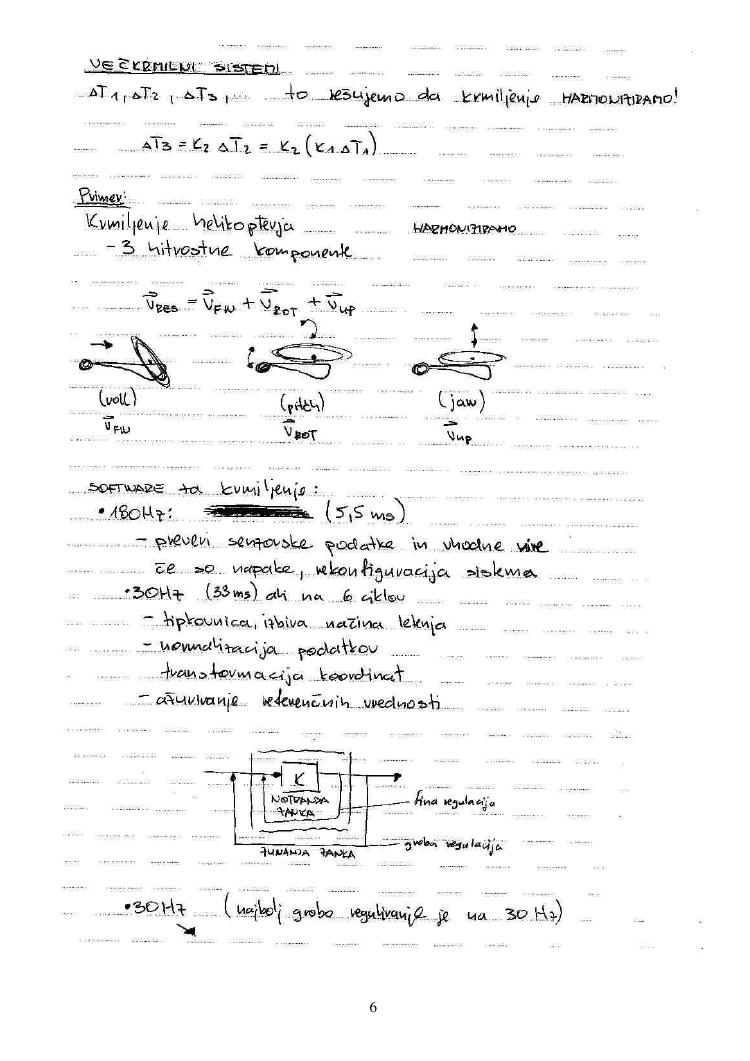 VEČKRMILNI SISTEMI
ΔT1, ΔT2, ΔT3, ... to rešujemo da krmiljenje HARMONIZIRAMO!
ΔT3 = K2 ΔT2 = K2 (K1 ΔT1)
Primer:
Krmiljenje helikopterja HARMONIZIRAMO
- 3 hitrostne komponente
V RES = V FW + V ROT + V up
(roll) (pitch) (jaw)
V FW V ROT V up
SOFTWARE za krmiljenje:
• 180Hz: (5,5 ms)
- preveri senzorske podatke in vhodne vire
če so napake, rekonfiguracija sistema
• 30Hz (33ms) ali na 6 ciklov
- tipkovnica, izbira načina letenja
- normalizacija podatkov
transformacija koordinat
- ažuriranje referenčnih vrednosti
K
NOTRANJA
ZANKA
fina regulacija
groba regulacija
ZUNANJA ZANKA
• 30Hz (najbolj grobo reguliranje je na 30 Hz)
6